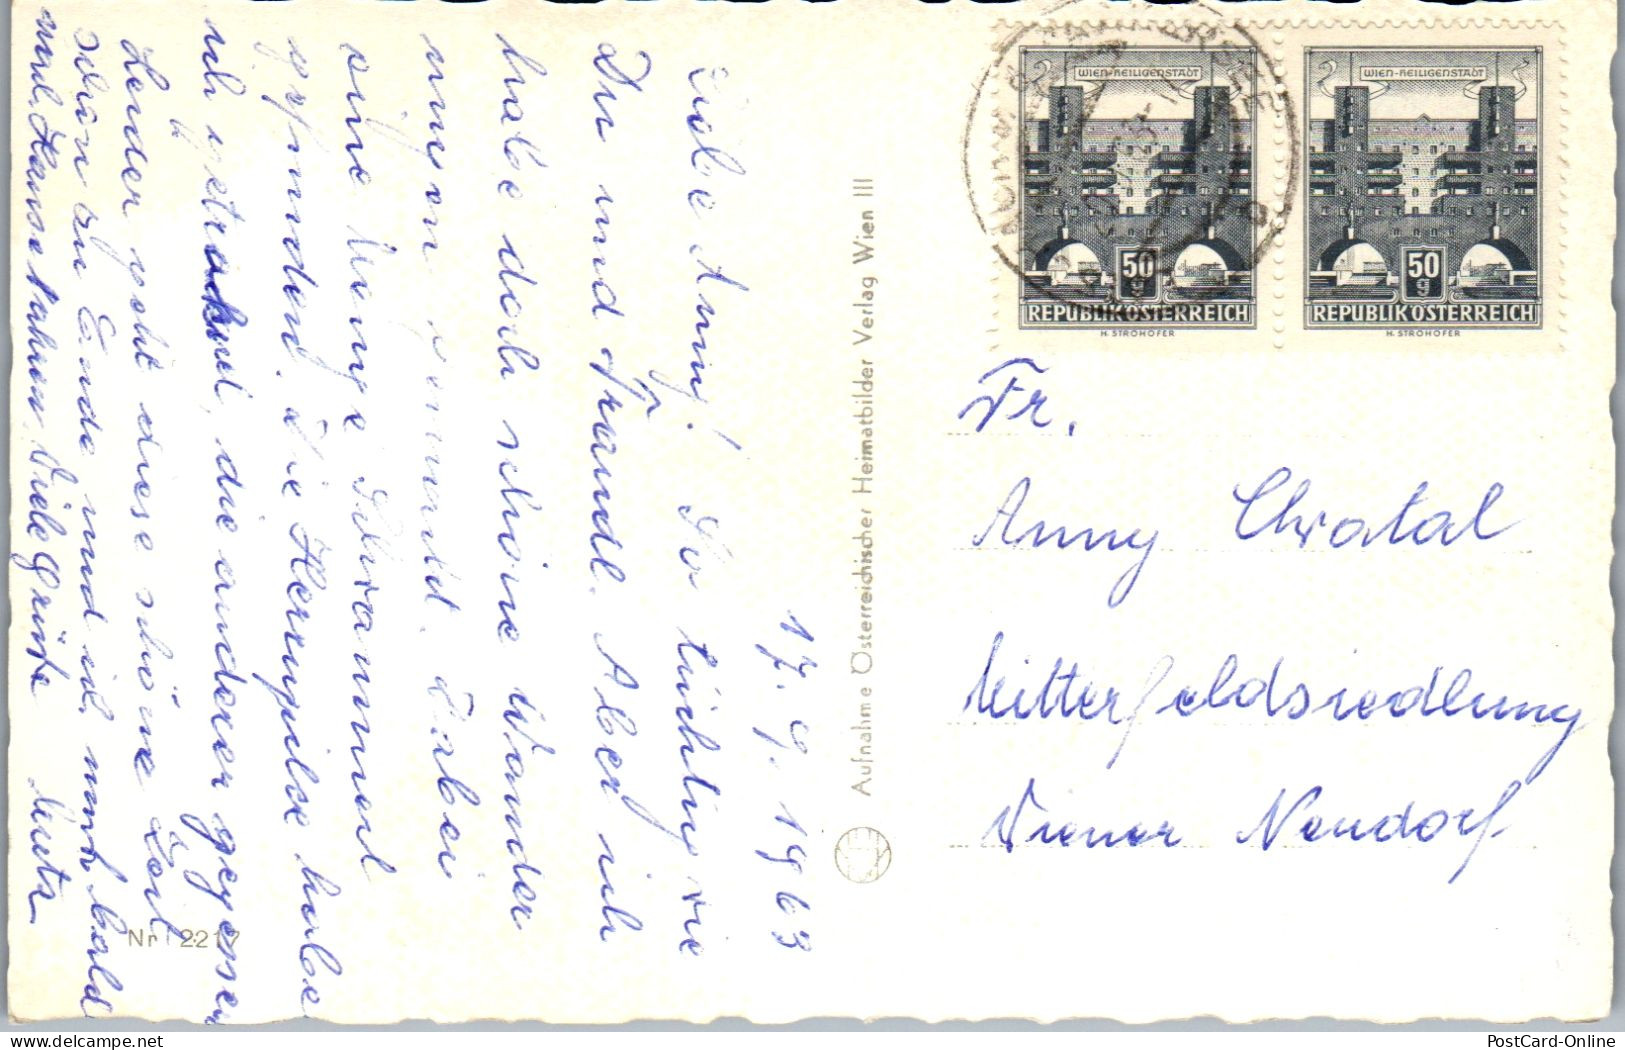 17. 9. 1963
Liebe Anny! So tüchtig wie
Du und Traudl. Aber ich
habe doch schöne Wander
ungen gemacht. Dabei
eine Menge Schwammerl
gefunden. Die Herrenpilze habe
ich getrocknet, die anderen gegessen
Leider geht diese schöne Zeit
schon zu Ende und ich muß bald
nach Hause fahren. Viele Grüße
Aufnahme Österreichischer Heimatbilder Verlag Wien III
Nr. 2217
WIEN-HEILIGENSTADT
50 g
REPUBLIK ÖSTERREICH
H. STROHOFER
WIEN-HEILIGENSTADT
50 g
REPUBLIK ÖSTERREICH
H. STROHOFER
Fr.
Anny Chvatal
Mitterfeldsiedlung
Wiener Neudorf
PostCard-Online